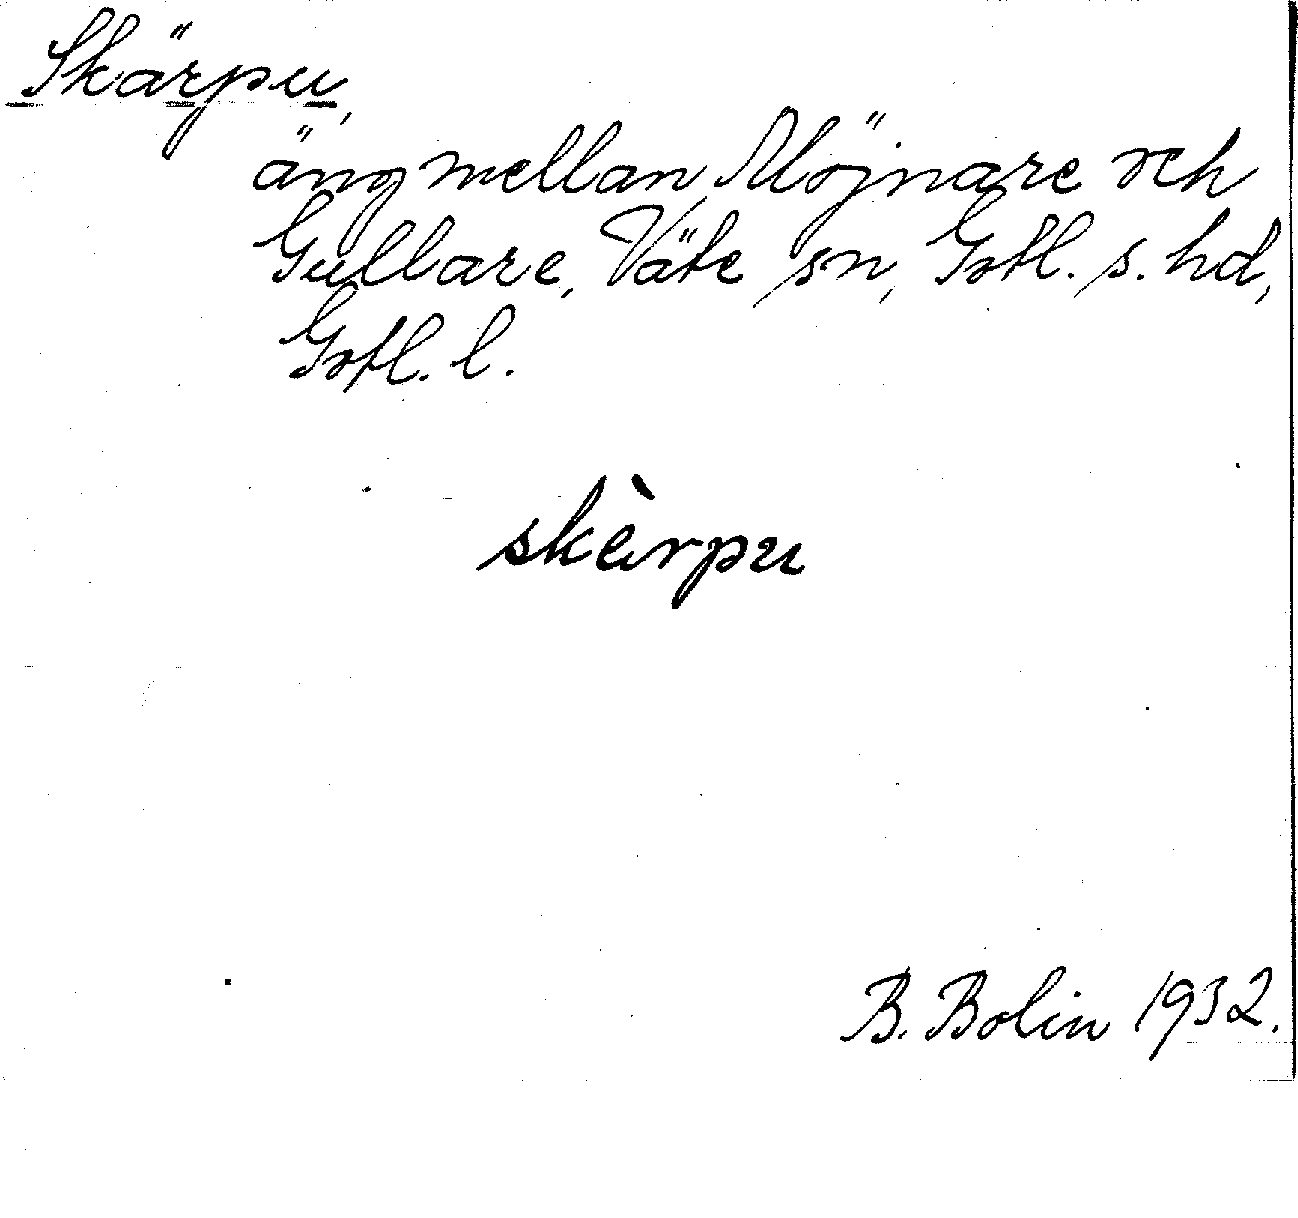 Skärpu,
äng mellan Möjnare och
Gullare, Väte sn, Gotl. s. hd,
Gotl. l.
skèrpu
B. Bolin 1932.